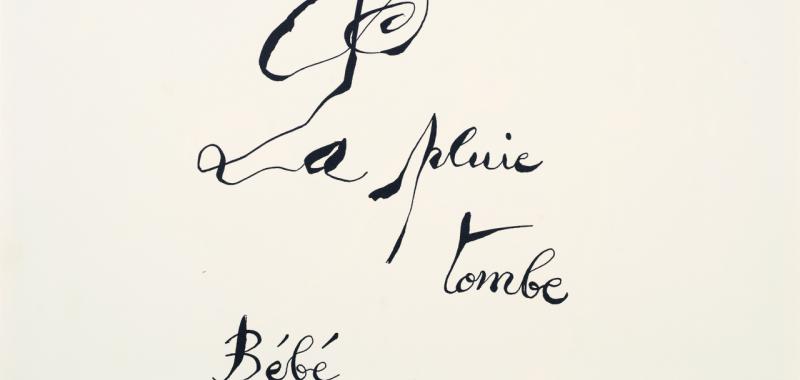 La pluie
tombe
Bébé